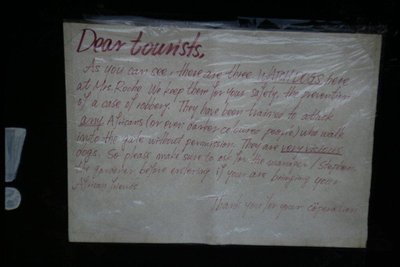 Dear tourists,
As you can see, there are three WATCHDOGS here
at Mrs. Roche. We keep them for your safety, the prevention
of a case of robbery. They have been trained to attack
any Africans (or even darker coloured people) who walk
into the gate without permission. They are very vicious
dogs. So please make sure to ask for the manager /
the gardener before entering if your are bringing your
African friends
Thank you for your coperation